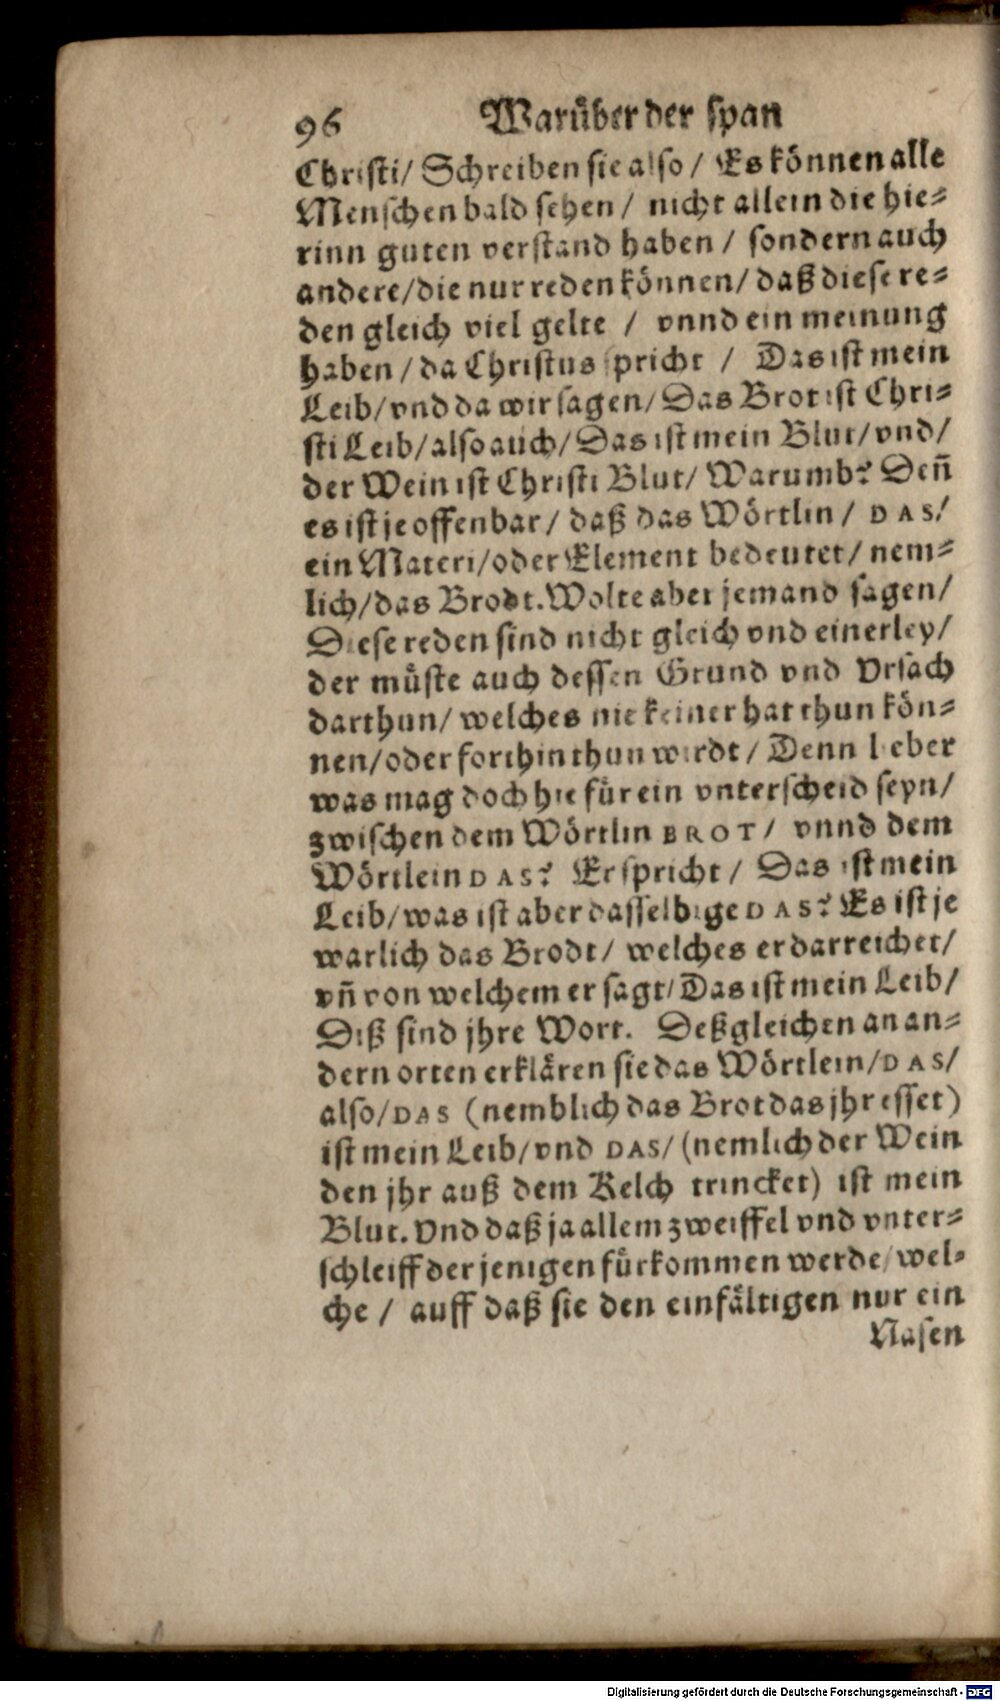 96 Warüber der span
Christi/ Schreiben sie also/ Es können alle
Menschen bald sehen/ nicht allein die hie⸗
rinn guten verstand haben/ sondern auch
andere/ die nur reden können/ daß diese re⸗
den gleich viel gelte / vnnd ein meinung
haben/ da Christus spricht / Das ist mein
Leib/ vnd da wir sagen/ Das Brot ist Chri⸗
sti Leib/ also auch/ Das ist mein Blut/ vnd/
der Wein ist Christi Blut/ Warumb? Deñ
es ist je offenbar/ daß das Wörtlin/ DAS/
ein Materi/ oder Element bedeutet/ nem⸗
lich/ das Brodt. Wolte aber jemand sagen/
Diese reden sind nicht gleich vnd einerley/
der müste auch dessen Grund vnd Vrsach
darthun/ welches nie keiner hat thun kön⸗
nen/ oder forthin thun wirdt/ Denn lieber
was mag doch hie für ein vnterscheid seyn/
zwischen dem Wörtlin BROT/ vnnd dem
Wörtlein DAS? Er spricht/ Das ist mein
Leib/ was ist aber dasselbige DAS? Es ist je
warlich das Brodt/ welches er darreichet/
vñ von welchem er sagt/ Das ist mein Leib/
Diß sind jhre Wort. Deßgleichen an an⸗
dern orten erklären sie das Wörtlein/ DAS/
also/ DAS (nemblich das Brot das jhr esset)
ist mein Leib/ vnd DAS/ (nemlich der Wein
den jhr auß dem Kelch trincket) ist mein
Blut. Vnd daß ja allem zweiffel vnd vnter⸗
schleiff der jenigen fürkommen werde/ wel⸗
che / auff daß sie den einfältigen nur ein
Nasen
Digitalisierung gefördert durch die Deutsche Forschungsgemeinschaft - DFG